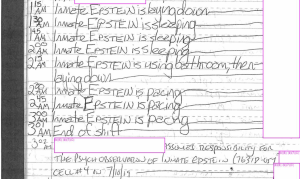 1:15 AM Inmate EPSTEIN is laying down
1:30 AM Inmate EPSTEIN is sleeping
1:45 AM Inmate EPSTEIN is sleeping
2:00 AM Inmate EPSTEIN is sleeping
2:15 AM Inmate EPSTEIN is using bathroom, then
laying down
2:30 AM Inmate EPSTEIN is pacing
2:45 AM Inmate EPSTEIN is pacing
3:00 AM Inmate EPSTEIN is pacing
3:01 AM End of shift
ISSUMES RESPONSIBILITY FOR
THE PSYCH OBSERVATION OF INMATE EPSTEIN
CELL #4 N 7/10/19